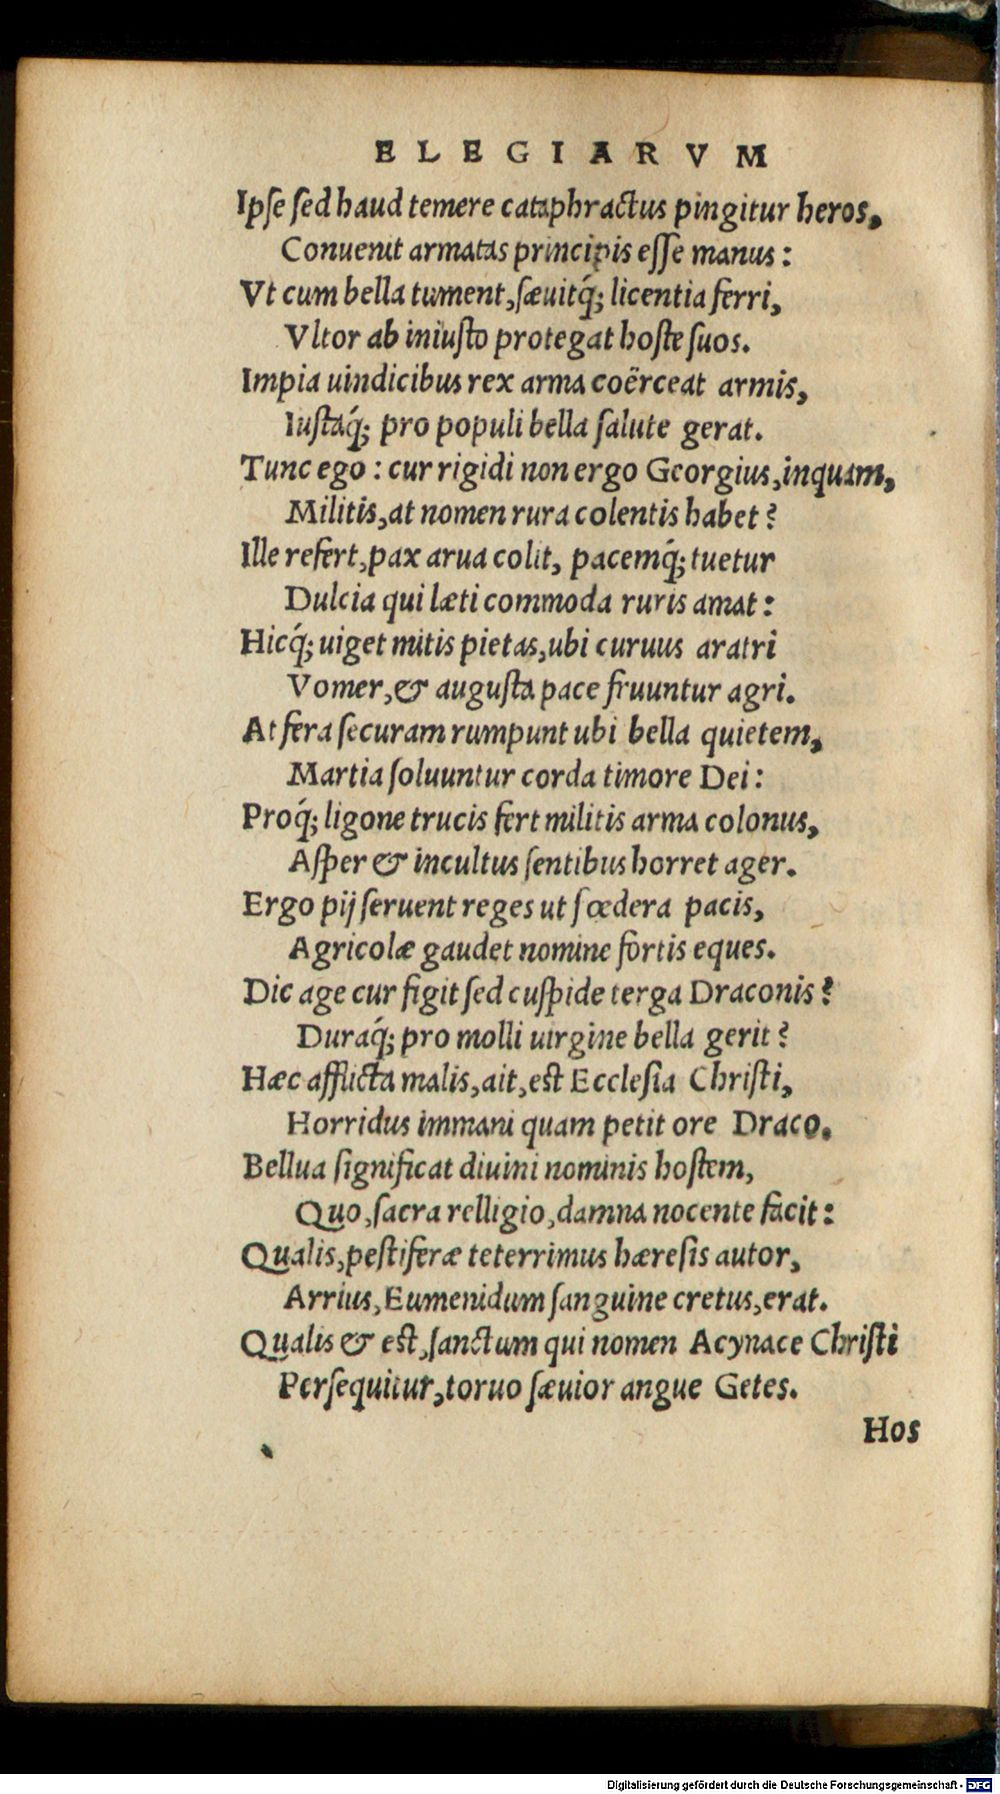 ELEGIARVM
Ipse sed haud temere cataphractus pingitur heros,
Conuenit armatas principis esse manus:
Vt cum bella tument, sæuitq́; licentia ferri,
Vltor ab iniusto protegat hoste suos.
Impia uindicibus rex arma coërceat armis,
Iustaq́; pro populi bella salute gerat.
Tunc ego: cur rigidi non ergo Georgius, inquam,
Militis, at nomen rura colentis habet?
Ille refert, pax arua colit, pacemq́; tuetur
Dulcia qui læti commoda ruris amat:
Hicq́; uiget mitis pietas, ubi curuus aratri
Vomer, & augusta pace fruuntur agri.
At fera securam rumpunt ubi bella quietem,
Martia soluuntur corda timore Dei:
Proq́; ligone trucis fert militis arma colonus,
Asper & incultus sentibus horret ager.
Ergo pij seruent reges ut fœdera pacis,
Agricolæ gaudet nomine fortis eques.
Dic age cur figit sed cuspide terga Draconis?
Duraq́; pro molli uirgine bella gerit?
Hæc afflicta malis, ait, est Ecclesia Christi,
Horridus immani quam petit ore Draco.
Bellua significat diuini nominis hostem,
Quo, sacra relligio, damna nocente facit:
Qualis, pestiferæ teterrimus hæresis autor,
Arrius, Eumenidum sanguine cretus, erat.
Qualis & est, sanctum qui nomen Acynace Christi
Persequitur, toruo sæuior angue Getes.
Hos
Digitalisierung gefördert durch die Deutsche Forschungsgemeinschaft - DFG